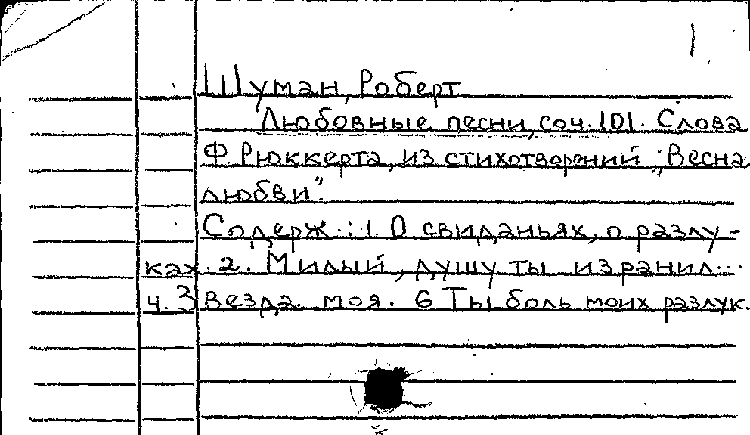 1
Шуман, Роберт
Любовные песни, соч. 101. Слова
Ф Рюккерта, из стихотворений "Весна
любви".
Содерж.: 1 О свиданьях, о разлу-
ках. 2. Милый, душу ты изранил...
4. Звезда моя. 6 Ты боль моих разлук.